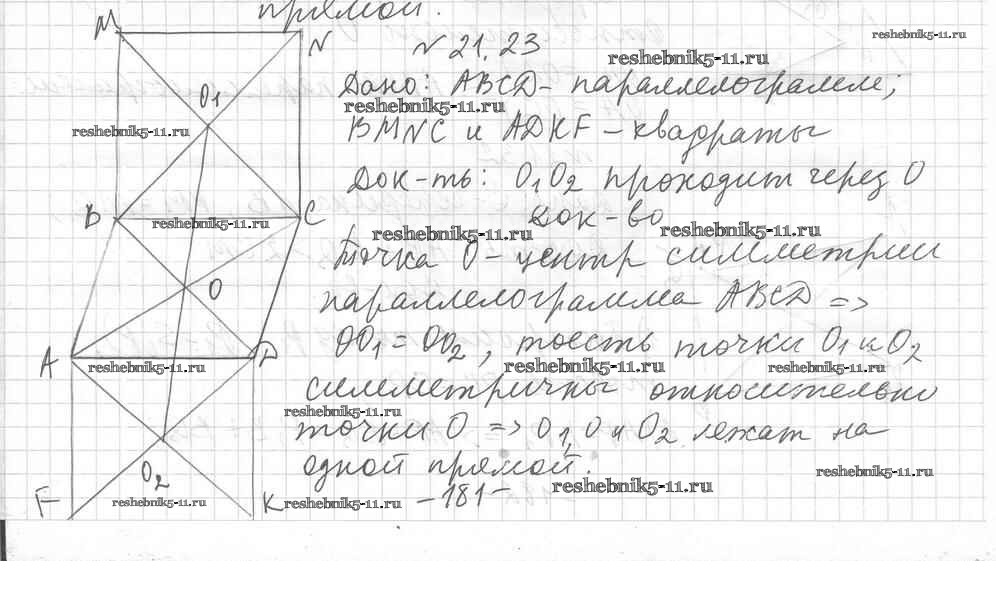 прямой.
M
N
N 21.23
reshebnik5-11.ru
reshebnik5-11.ru
O1
Дано: ABCD - параллелограмм;
reshebnik5-11.ru
reshebnik5-11.ru
BMNC и ADKF - квадраты
Док-ть: O1O2 проходит через O
B
C
reshebnik5-11.ru
Док-во
reshebnik5-11.ru
reshebnik5-11.ru
Точка O - центр симметрии
O
параллелограмма ABCD =>
OO1 = OO2, тоесть точки O1 и O2
A
D
reshebnik5-11.ru
reshebnik5-11.ru
reshebnik5-11.ru
симметричны относительно
reshebnik5-11.ru
точки O => O1, O и O2 лежат на
одной прямой.
O2
reshebnik5-11.ru
F
K
reshebnik5-11.ru
reshebnik5-11.ru
-181-
reshebnik5-11.ru